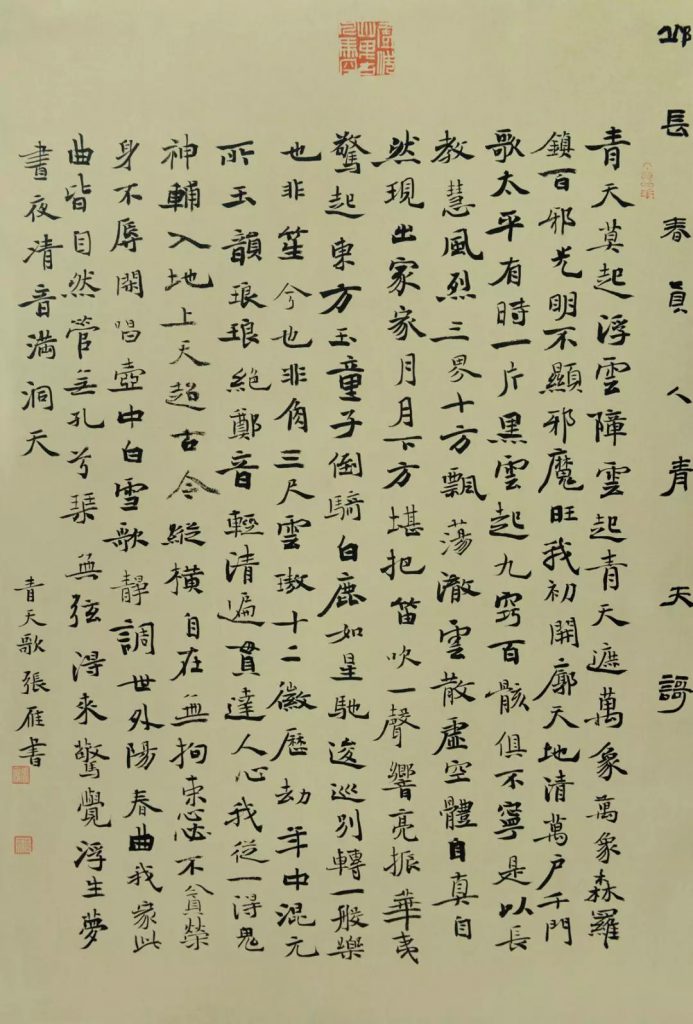 邱長春真人青天謌
青天莫起浮雲障雲起青天遮萬象萬象森羅
鎮百邪光明不顯邪魔旺我初開廓天地清萬戶千門
歌太平有時一片黑雲起九竅百骸俱不寧是以長
教慧風烈三界十方飄蕩澈雲散虛空體自真自
然現出家家月月下方堪把笛吹一聲響亮振華夷
驚起東方玉童子倒騎白鹿如星馳逡巡別轉一般樂
也非笙兮也非角三尺雲璈十二徽歷劫年中混元
所玉韻琅琅絕鄭音輕清遍貫達人心我從一得鬼
神輔入地上天超古今縱橫自在無拘束心不貪榮
身不辱閑唱壺中白雪歌靜調世外陽春曲我家此
曲皆自然管無孔兮琴無弦得來驚覺浮生夢
晝夜清音滿洞天
青天歌張雁書